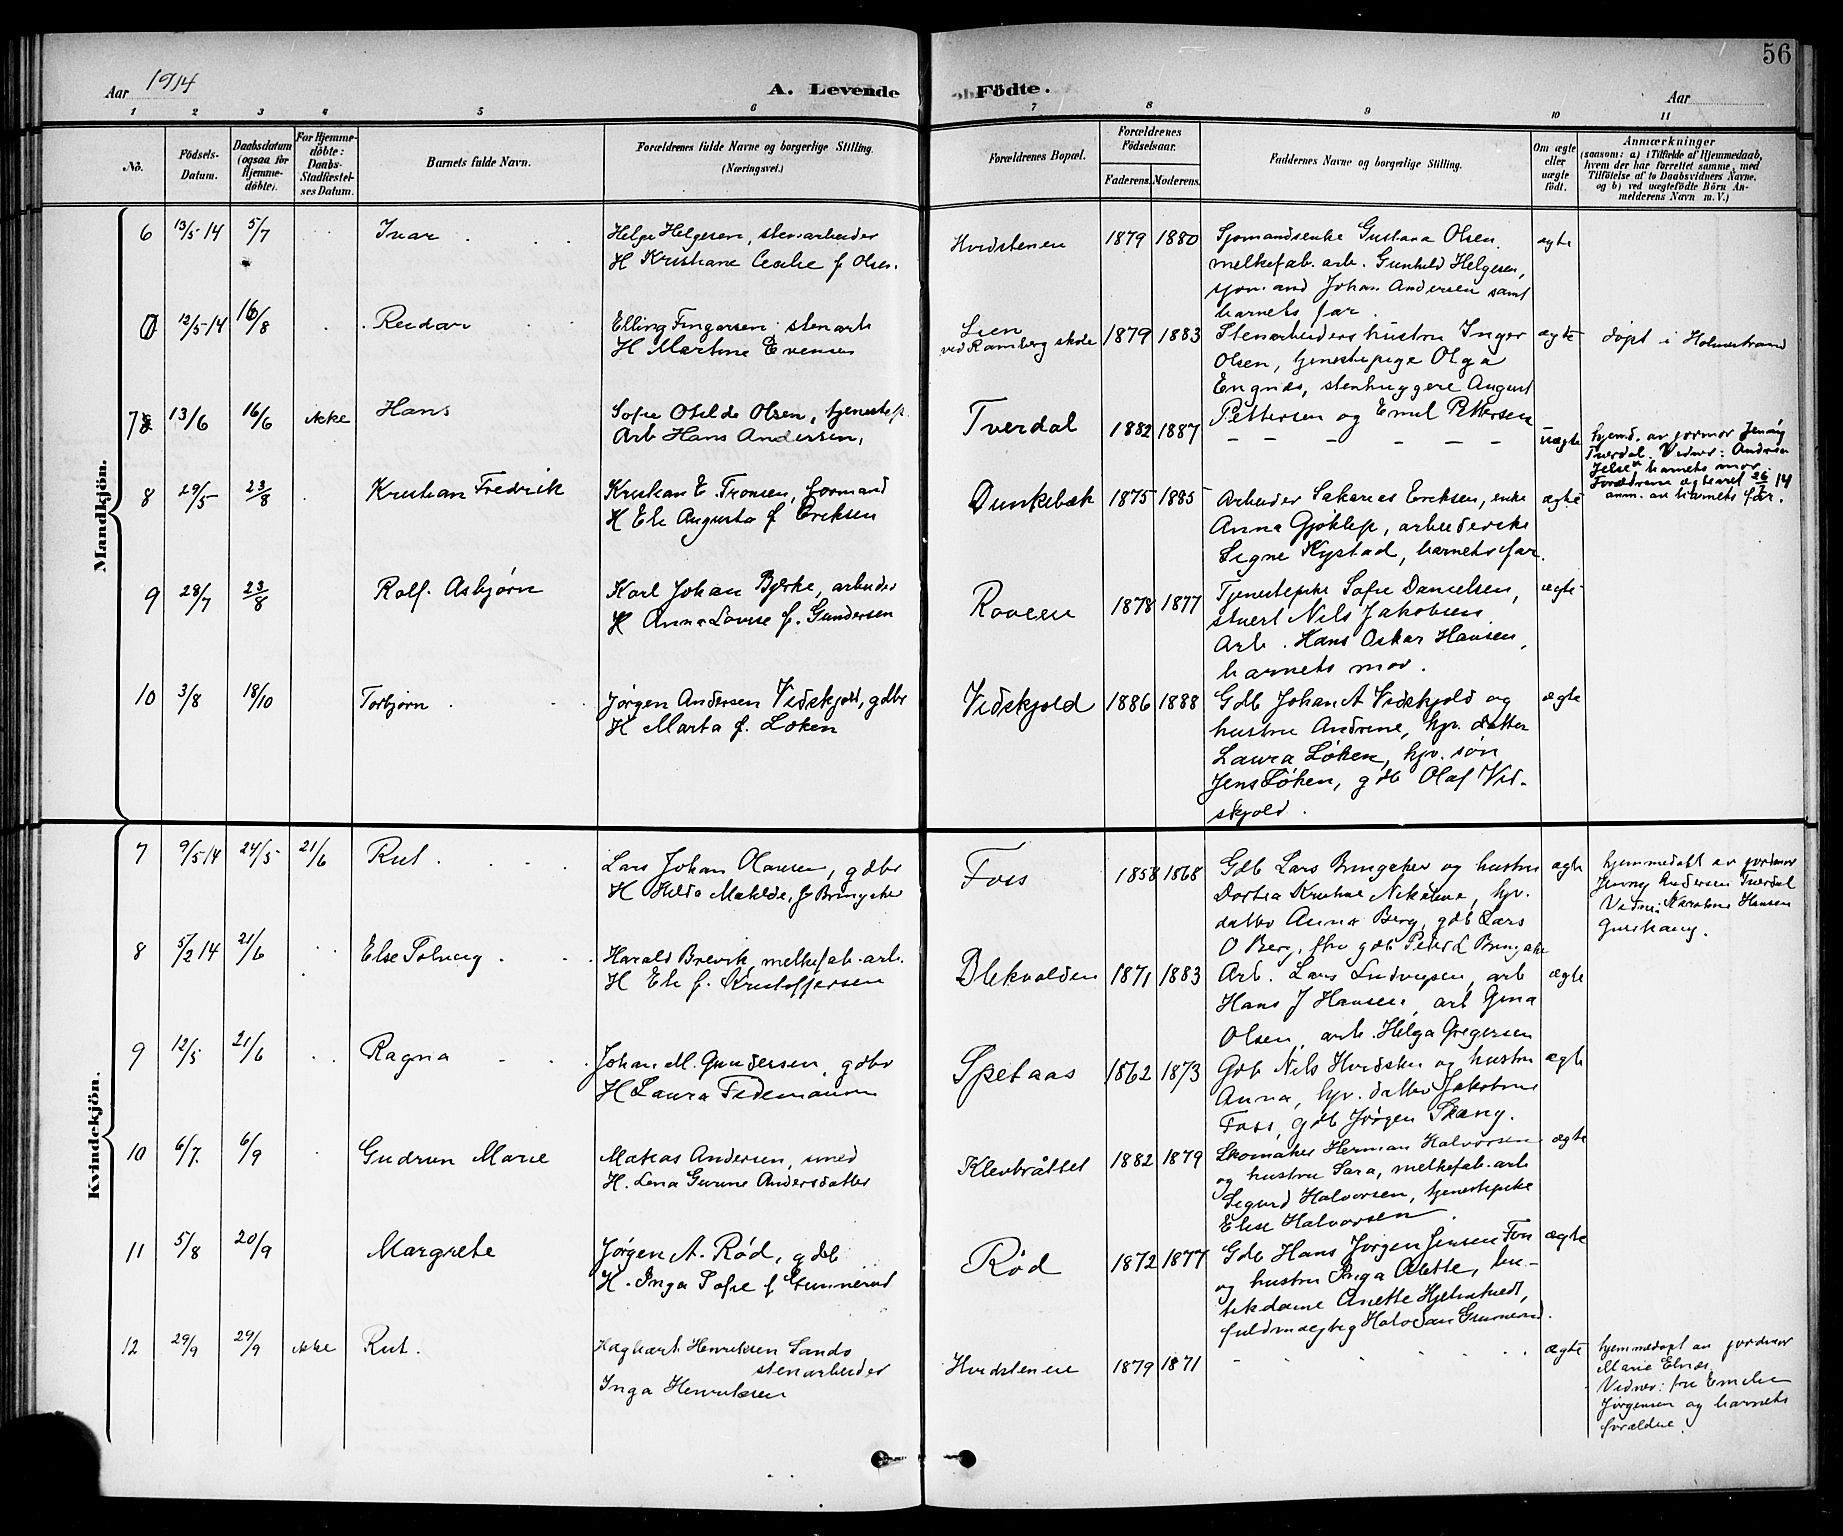 56
Aar 1914
A. Levende
Födte.
Aar
1 2 3 4 5 6 7 8 9 10 11
No.
Födsels-
Datum.
Daabsdatum
(ogsaa for
Hjemme-
döbte).
For Hjemme-
döbte:
Daabs-
Stadfæstel-
ses Datum.
Barnets fulde Navn.
Forældrenes fulde Navne og borgerlige Stilling.
(Næringsvei.)
Forældrenes Bopæl.
Forældrenes
Födselsaar.
Faderens. Moderens.
Faddernes Navne og borgerlige Stilling.
Om ægte
eller
uægte
födt.
Anmærkninger
(saasom: a) i Tilfælde af Hjemmedaab,
hvem der har forrettet samme, med
Tilföielse af to Daabsvidners Navne,
og b) ved uægtefödte Börn An-
melderens Navn m. V.)
Mandkjön.
6 13/5 14 5/7 Ivar
Helge Helgesen, stenarbeider
H Kristiane Cecilie f Olsen.
Hvidstenen 1879 1880
Sjomandsenke Gustava Olsen,
melkefab. arb. Gunhild Helgesen,
sjømand Johan Andersen samt
barnets far.
ægte
12/5 14 16/8 Reidar
Elling Fingarsen stenarb
H Martine Evensen
Lien
ved Ramberg skole 1879 1883
Stenarbeiders hustru Inger
Olsen, tjenestepige Olga
Engnæs, stenhuggere August
Pettersen og Emil Pettersen
ægte
døpt i Holmestrand
7 13/6 16/6 ikke Hans
Sofie Otilde Olsen, tjenestep.
Arb Hans Andersen,
Tverdal 1882 1887
– – – – – –
uægte
hjemd. av jormor Jenny
Tverdal. Vidner: Andrea
Jelse, barnets mor.
Forældrene egteviet 26/7 14
anm. av barnets far.
8 29/5 23/8 Kristian Fredrik
Kristian E. Tronsen, formand
H Eli Augusta f Eriksen
Dunkebæk 1875 1885
Arbeider Sakarias Eriksen, enke
Anna Gjøklep, arbeiderske
Signe Kystad, barnets far.
ægte
9 28/7 23/8 Rolf Asbjørn
Karl Johan Bjerke, arbeider
H Anna Lovise f. Gundersen
Roveen 1878 1877
Tjenestepike Sofie Danielsen,
stuert Nils Jakobsen
Arb. Hans Oskar Hansen,
barnets mor.
ægte
10 3/8 18/10 Torbjørn
Jørgen Andersen Vidskjold, gdbr
H Marta f. Løken
Vidskjold 1886 1888
Gdb Johan A Vidskjold og
hustru Andrine, hjv. datter
Laura Løken, hjv. søn
Jens Løken, gdb Olaf Vid-
skjold.
ægte
Kvindekjön.
7 9/5 14 24/5 21/6 Rut
Lars Johan Hansen, gdbr
H Hilda Matilde, f Bringaker
Foss 1858 1868
Gdb Lars Bringaker og hustru
Dortea Kristine Nikoline, hjv.
datter Anna Berg, gdb Lars
O Berg, fhv gdb Peter L Bringaker
ægte
hjemmedøbt av jordmor
Jenny Andersen Tverdal
Vidne: Karoline Hansen
8 5/2 14 21/6 Else Solveig
Harald Brevik melkefab. arb.
H Eli f. Kristoffersen
Blekvolden 1871 1883
Arb. Lars Ludvigsen, arb
Hans J Hansen, arb Gina
Olsen, arb. Helga Gregersen
ægte
9 12/5 21/6 Ragna
Johan M. Gundersen, gdbr
H Laura Tidemansen
Spetaas 1862 1873
Gdb Nils Hvidsten og hustru
Anna, hjv. datter Jakobine
Foss, gdb Jørgen Skang.
ægte
10 6/7 6/9 Gudrun Marie
Matias Andersen, smed
H. Lena Gurine Andersdatter
Klevbråttet 1882 1879
Skomaker Herman Halvorsen
og hustru Sara, melkefab. arb
Sigurd Halvorsen, tjenestepike
Else Halvorsen.
ægte
11 5/8 20/9 Margrete
Jørgen A. Rød, gdb
H. Inga Sofie f Gunnerød
Rød 1872 1877
Gdb Hans Jørgen Jensen Foss
og hustru Inga Olette, bu-
tikdame Anette Hjelmtvedt,
fuldmægtig Halvdan Gunnerød.
ægte
12 29/9 29/9 ikke Rut.
Haghart Henriksen Sando
stenarbeider
Inga Henriksen
Hvidstenen 1879 1871
ægte
hjemmedøpt av jordmor
Marie Elnæs
Vidner: fru Emelie
Jørgensen og barnets
forældre.